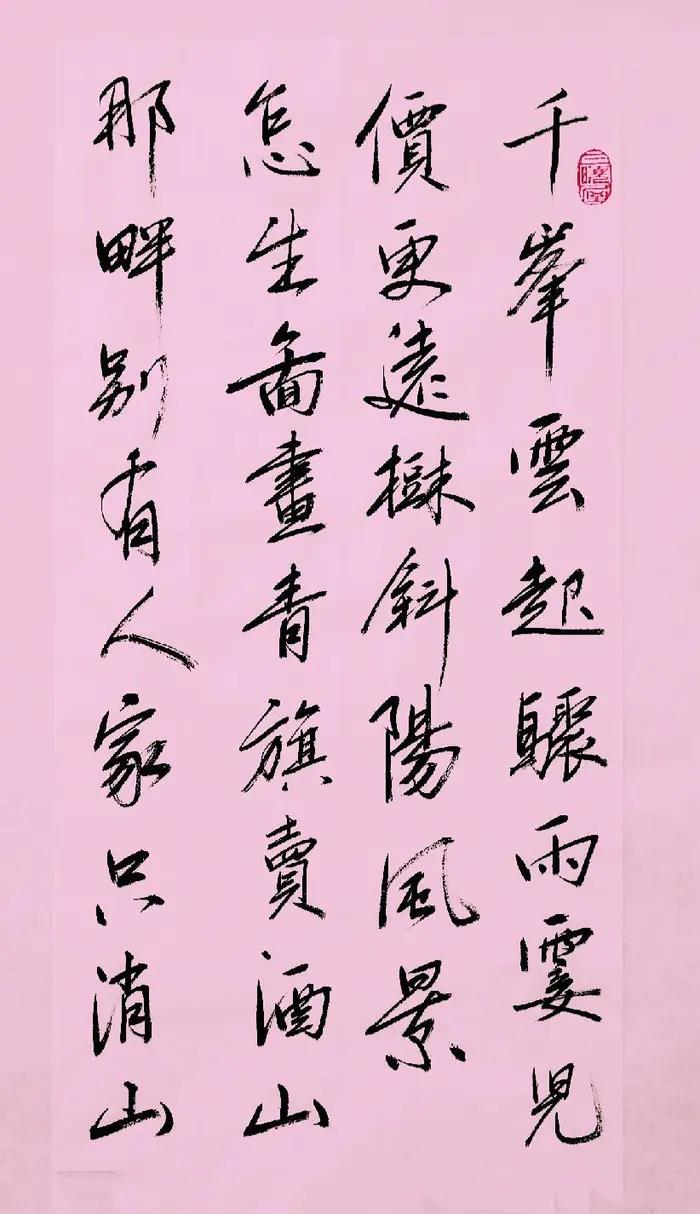 千峯雲起驟雨霎兒
價更遠樹斜陽風景
怎生圖畫青旗賣酒山
那畔别有人家只消山